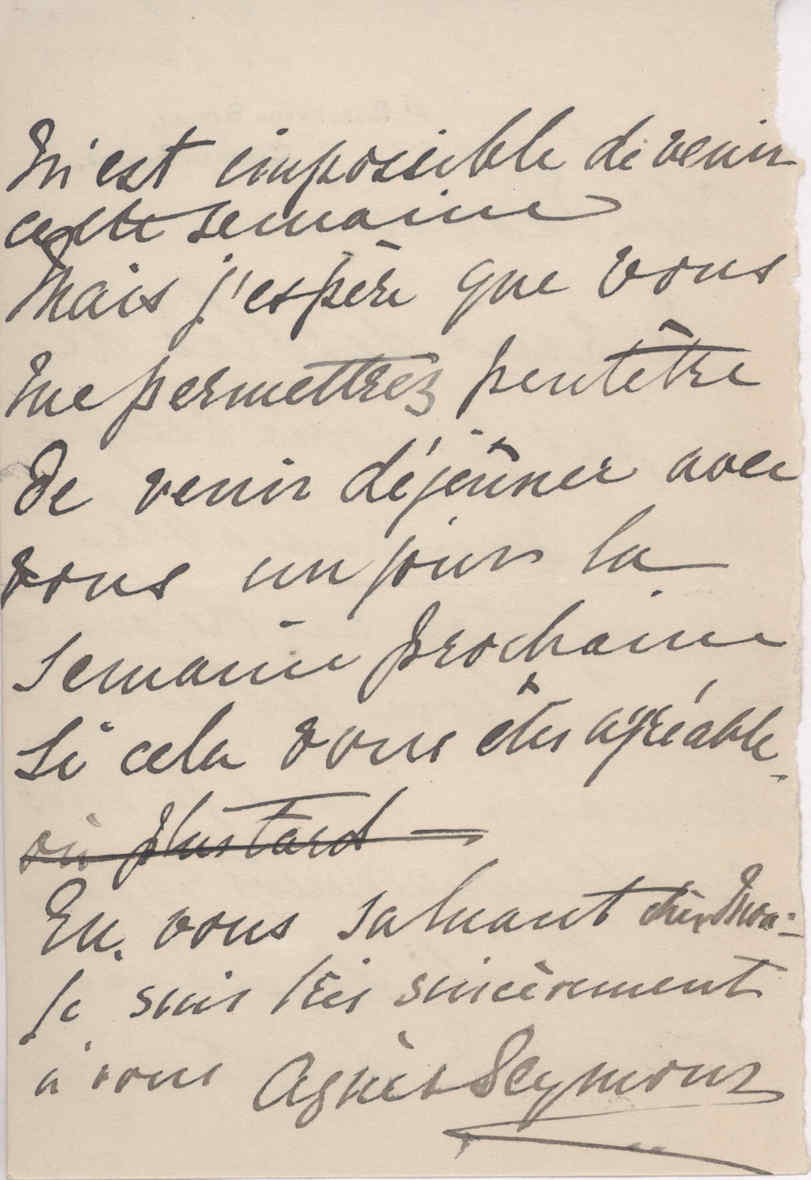 m'est impossible de venir
cette semaine
Mais j'espère que vous
me permettrez peutêtre
De venir déjeûner avec
vous un jour la
semaine prochaine
Si cela vous êtes agréable.
ou plustard
En vous saluant cher Mon:
Je suis très sincèrement
à vous Agnès Seymour